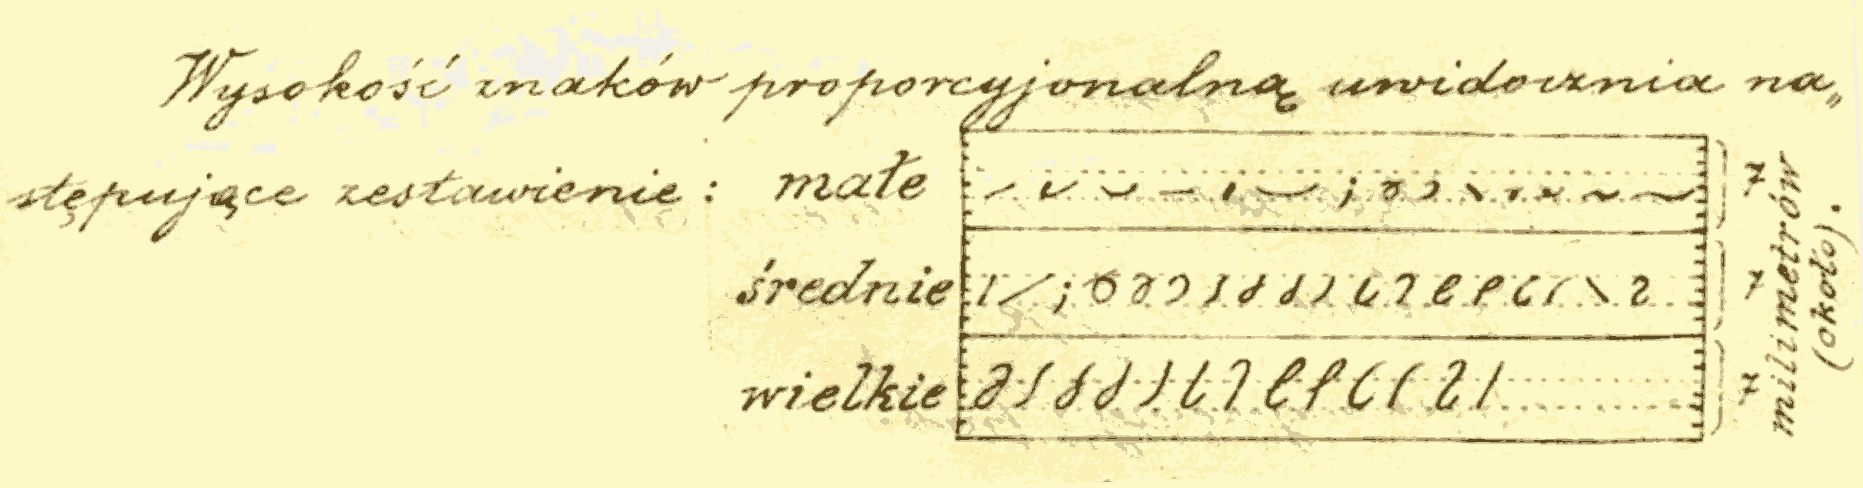 Wysokość znaków proporcyjonalną uwidocznia na„
stępujące zestawienie: małe 7
średnie 7
wielkie 7
milimetrów
(około).